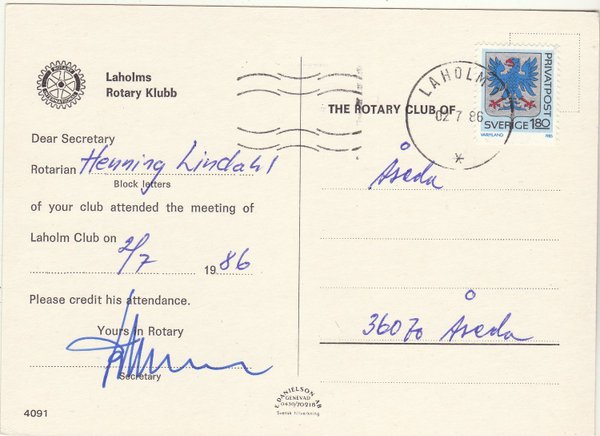 Laholms
Rotary Klubb
Dear Secretary
Rotarian Henning Lindahl
Block letters
of your club attended the meeting of
Laholm Club on
2/7 1986
Please credit his attendance.
Yours in Rotary
Secretary
4091
E. DANIELSON AB
GENEVAD
0430/70218
Svensk tillverkning
THE ROTARY CLUB OF
LAHOLM
02 7 86
PRIVATPOST
SVERIGE 180
VÄRMLAND 1985
Åseda
36070 Åseda